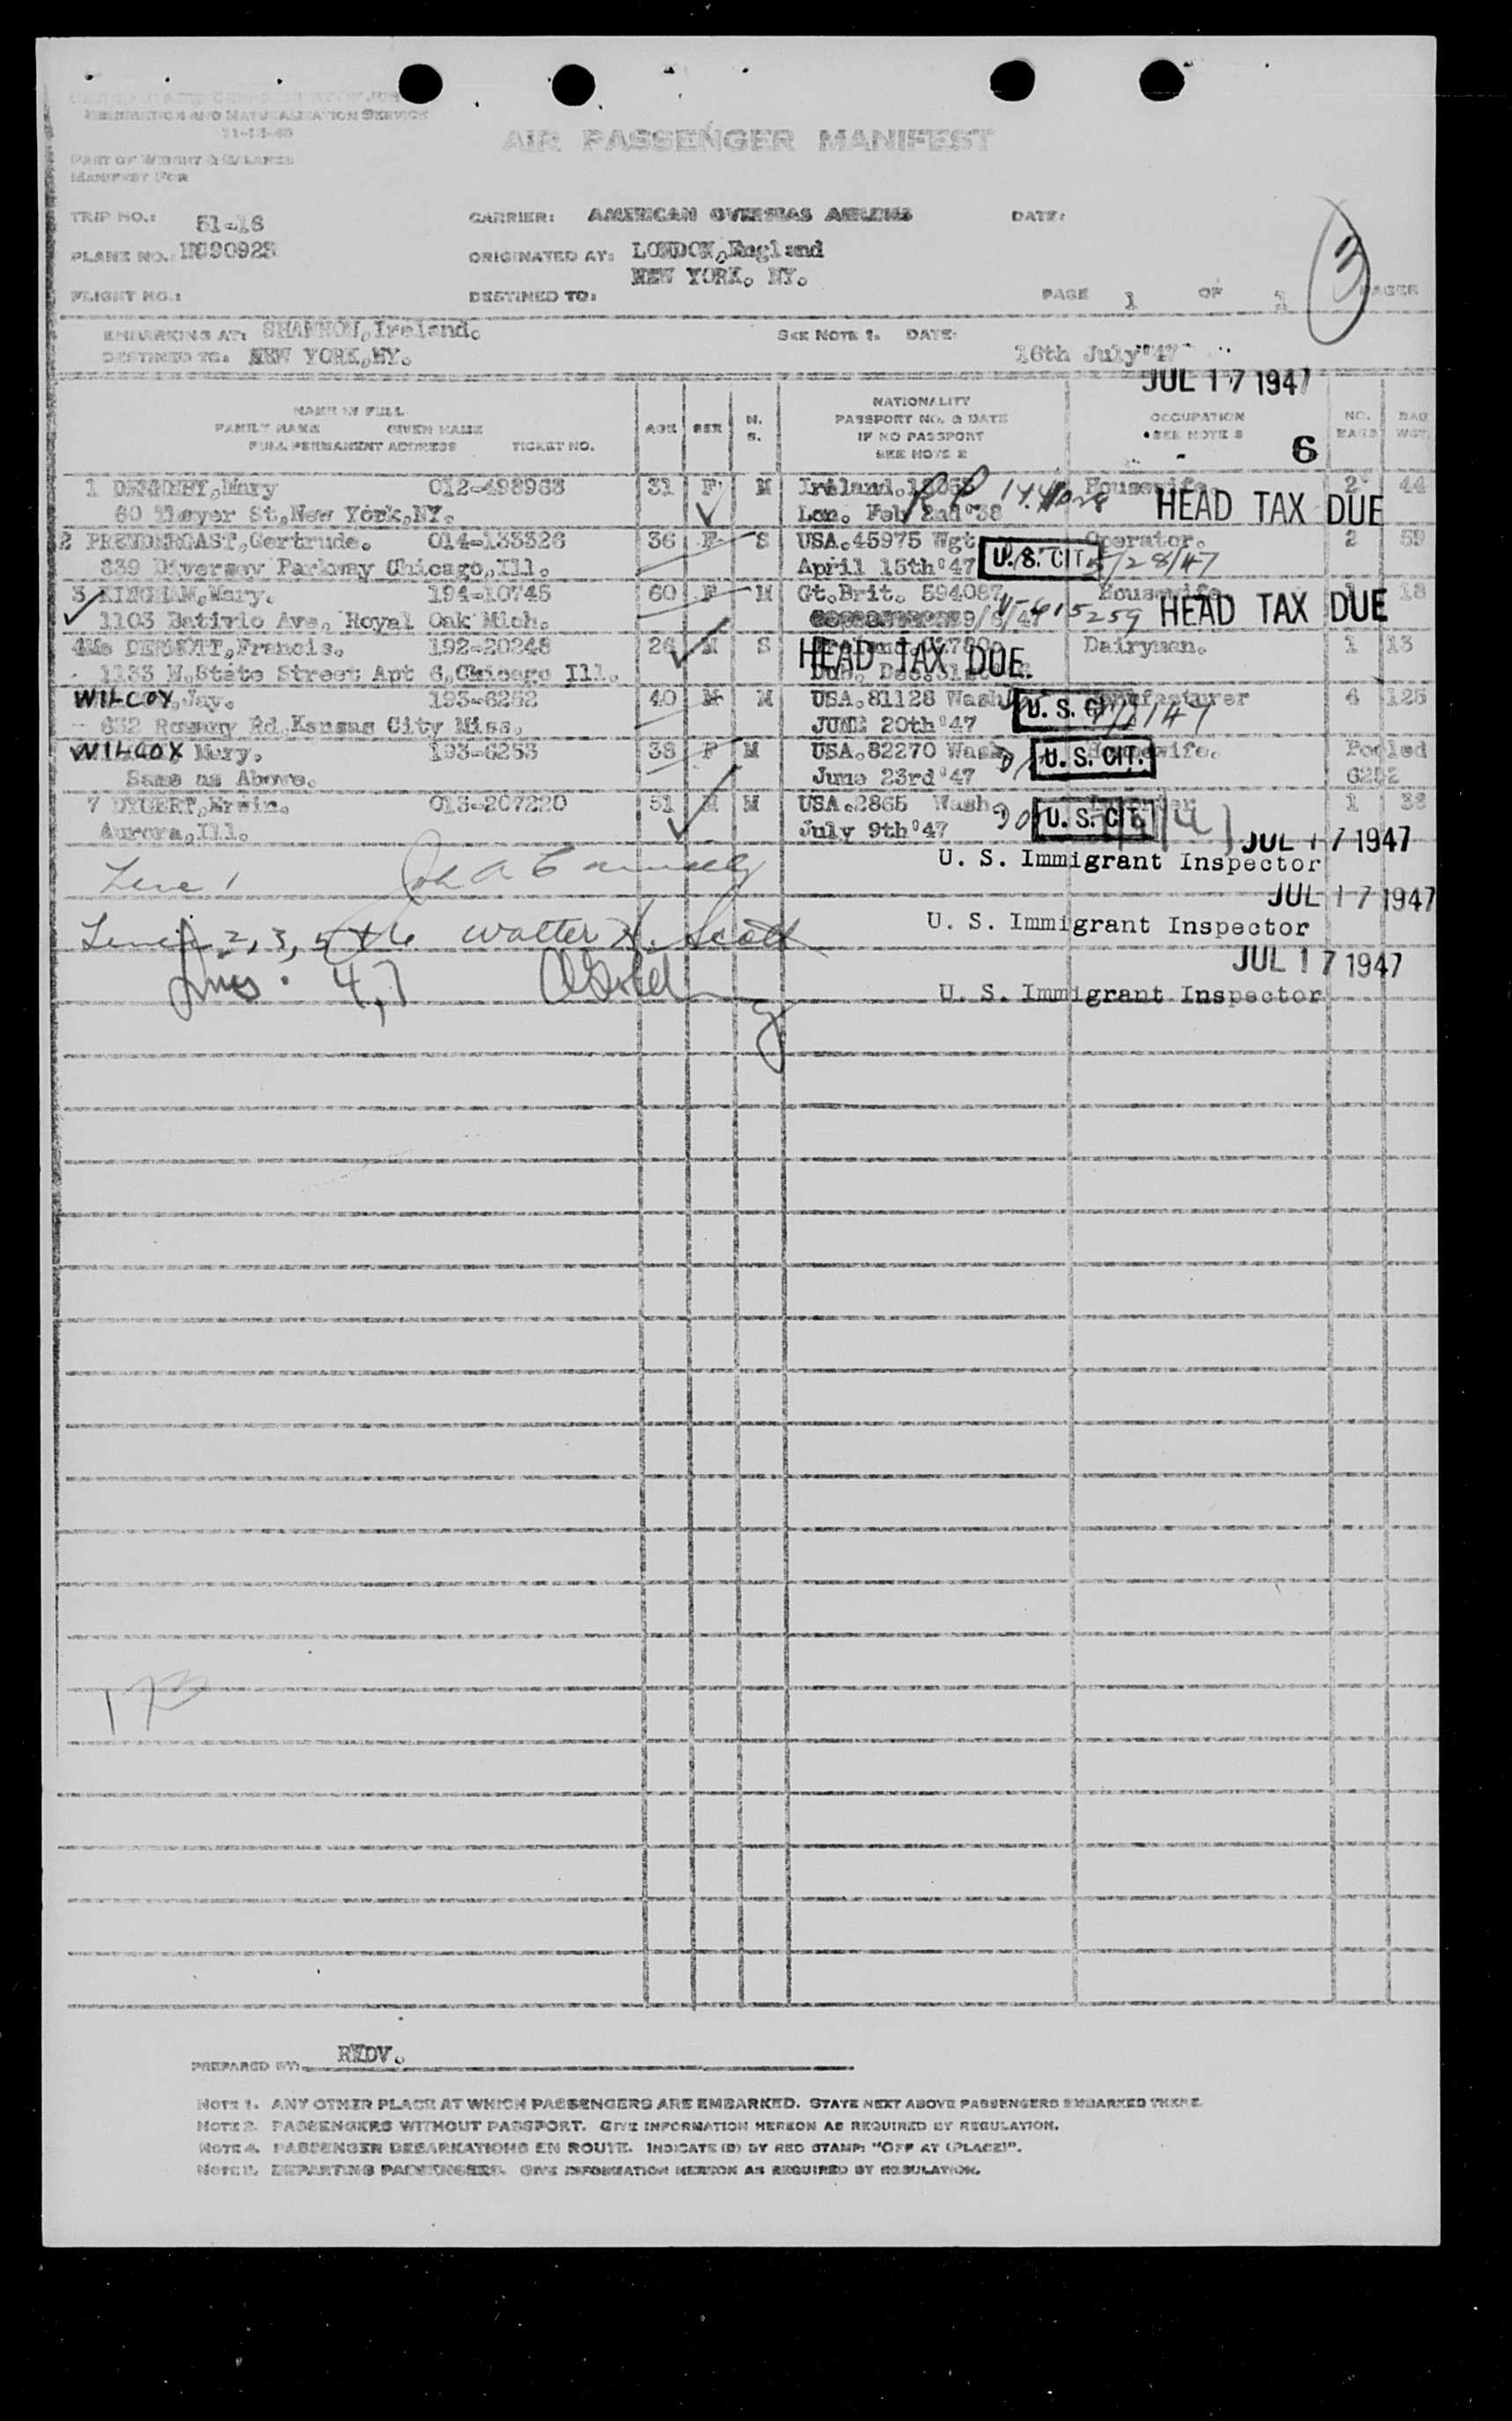 IMMIGRATION AND NATURALIZATION SERVICE
AIR PASSENGER MANIFEST
PART OF WEIGHT & BALANCE
MANIFEST FOR
TRIP NO.: 51-16 CARRIER: AMERICAN OVERSEAS AIRLINES DATE:
PLANE NO.: NC90925 ORIGINATED AT: LONDON,England
NEW YORK. NY.
FLIGHT NO.: DESTINED TO: PAGE 1 OF 1 PAGES
3
EMBARKING AT: SHANNON,Ireland. SEE NOTE 1. DATE:
DESTINED TO: NEW YORK,NY. 16th July'47
JUL 17 1947
NAME IN FULL
FAMILY NAME GIVEN NAME
FULL PERMANENT ADDRESS TICKET NO.
AGE SEX M. S.
NATIONALITY
PASSPORT NO. & DATE
IF NO PASSPORT
SEE NOTE 2
OCCUPATION
SEE NOTE 3
NO. BAGS BAG WGT.
6
1 Mary 012-498968 31 F M Ireland. Housewife. 2 44
60 Thayer St,New York,NY. Lon. Feb 2nd'38 HEAD TAX DUE
2 PRENDERGAST,Gertrude. 014-133326 36 F S USA.45975 Wgt Operator. 2 59
839 Diversey Parkway Chicago,Ill. April 15th'47 U. S. CIT. 5/28/47
3 KINGHAM,Mary. 194-10745 60 F M Gt.Brit. 594087 Housewife. 1 18
1103 Ave, Royal Oak Mich. 615259 HEAD TAX DUE
4 Francis. 192-20248 26 M S Dairyman. 1 13
1133 N.State Street Apt 6,Chicago Ill. HEAD TAX DUE.
WILCOX,Jay. 193-6252 40 M M USA.81128 Wash. Manufacturer 6 125
632 Romany Rd,Kansas City Miss. JUNE 20th'47 U. S. CIT.
WILCOX Mary. 193-6253 38 F M USA.82270 Wash. Housewife. Pooled
Same as Above. June 23rd'47 U. S. CIT. 6252
7 DYGERT,Erwin. 013-207220 51 M M USA.2865 Wash. 1 38
Aurora,Ill. July 9th'47 U. S. CIT. JUL 17 1947
U. S. Immigrant Inspector
Line 1 John A
JUL 17 1947
U. S. Immigrant Inspector
Lines 2, 3, 5 & 6 Walter H. Scott
JUL 17 1947
Lines 4, 7
U. S. Immigrant Inspector
173
PREPARED BY:
NOTE 1. ANY OTHER PLACE AT WHICH PASSENGERS ARE EMBARKED. STATE NEXT ABOVE PASSENGERS EMBARKED THERE.
NOTE 2. PASSENGERS WITHOUT PASSPORT. GIVE INFORMATION HEREON AS REQUIRED BY REGULATION.
NOTE 4. PASSENGER DEBARKATIONS EN ROUTE. INDICATE (D) BY RED STAMP: "OFF AT (PLACE)".
NOTE 5. DEPARTING PASSENGERS. GIVE INFORMATION HEREON AS REQUIRED BY REGULATION.